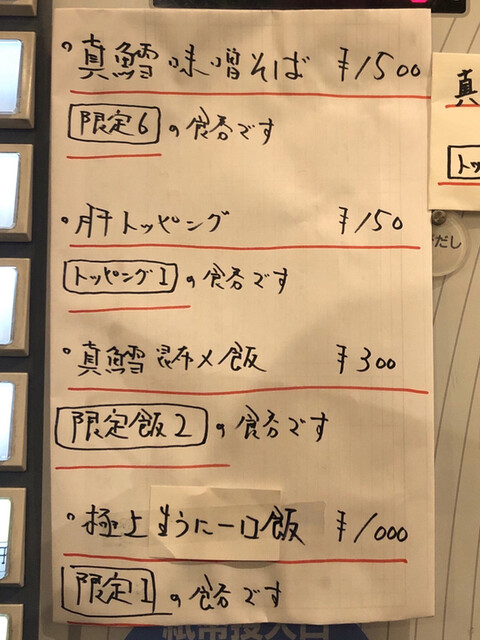 。真鱈味噌そば ¥1500
限定6の食券です
。肝トッピング ¥150
トッピング1の食券です
。真鱈昆布〆飯 ¥300
限定飯2の食券です
。極上生うに一口飯 ¥1000
限定1の食券です
真
トッ
だし
紙幣投入口